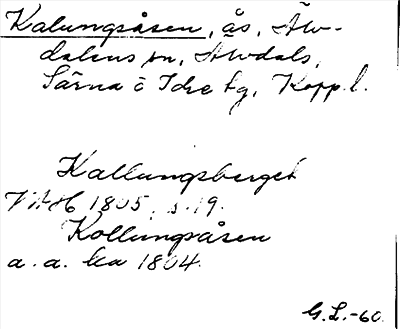 Kalungsåsen, ås, Älv-
dalens sn, Älvdals,
Särna o Idre tg, Kopp. l.
Kallungsberget
VAH 1805, s. 19.
Kollungsåsen
a. a. ka 1804.
G.L.-60.